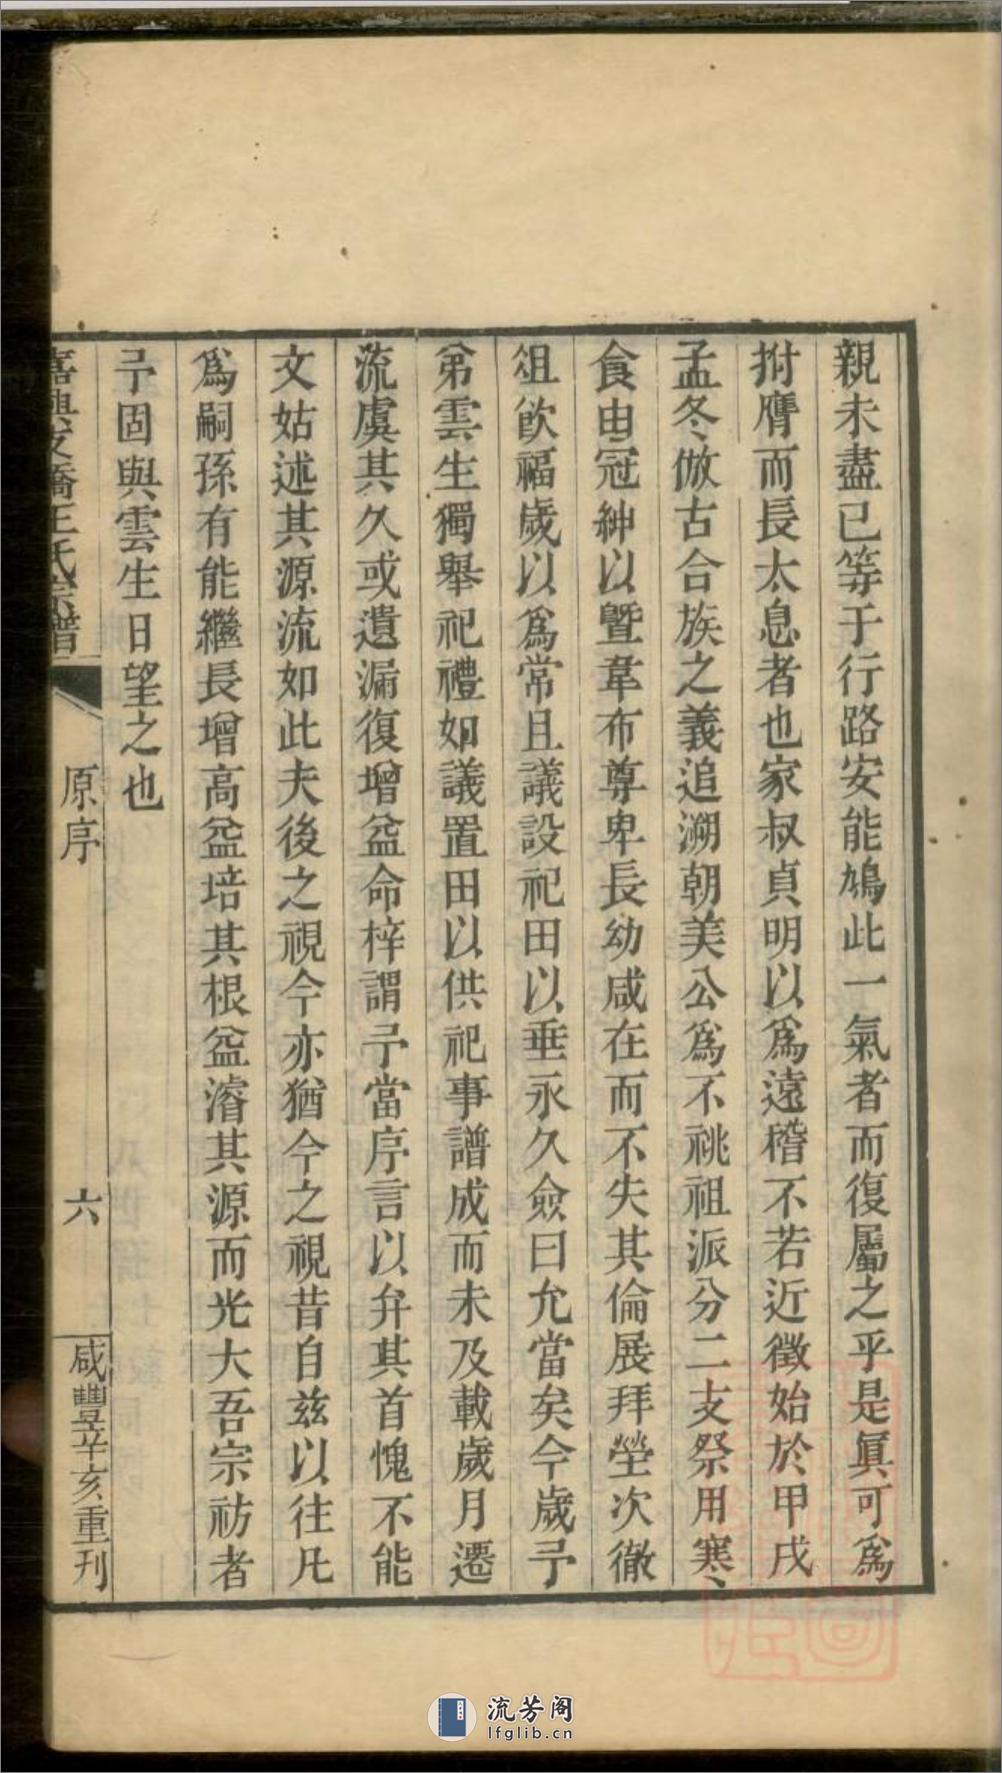 親未盡已等于行路安能鳩此一氣者而復屬之乎是眞可爲
拊膺而長太息者也家叔貞明以爲遠稽不若近徵始於甲戌
孟冬倣古合族之義追溯朝美公爲不祧祖派分二支祭用寒
食由冠紳以曁韋布尊卑長幼咸在而不失其倫展拜塋次徹
俎飲福歲以爲常且議設祀田以垂永久僉曰允當矣今歲予
弟雲生獨舉祀禮如議置田以供祀事譜成而未及載歲月遷
流虞其久或遺漏復增益命梓謂予當序言以弁其首愧不能
文姑述其源流如此夫後之視今亦猶今之視昔自兹以往凡
爲嗣孫有能繼長增高益培其根益濬其源而光大吾宗祊者
予固與雲生日望之也
嘉興文橋王氏宗譜
原序
六
咸豐辛亥重刊
流芳阁
lfglib.cn